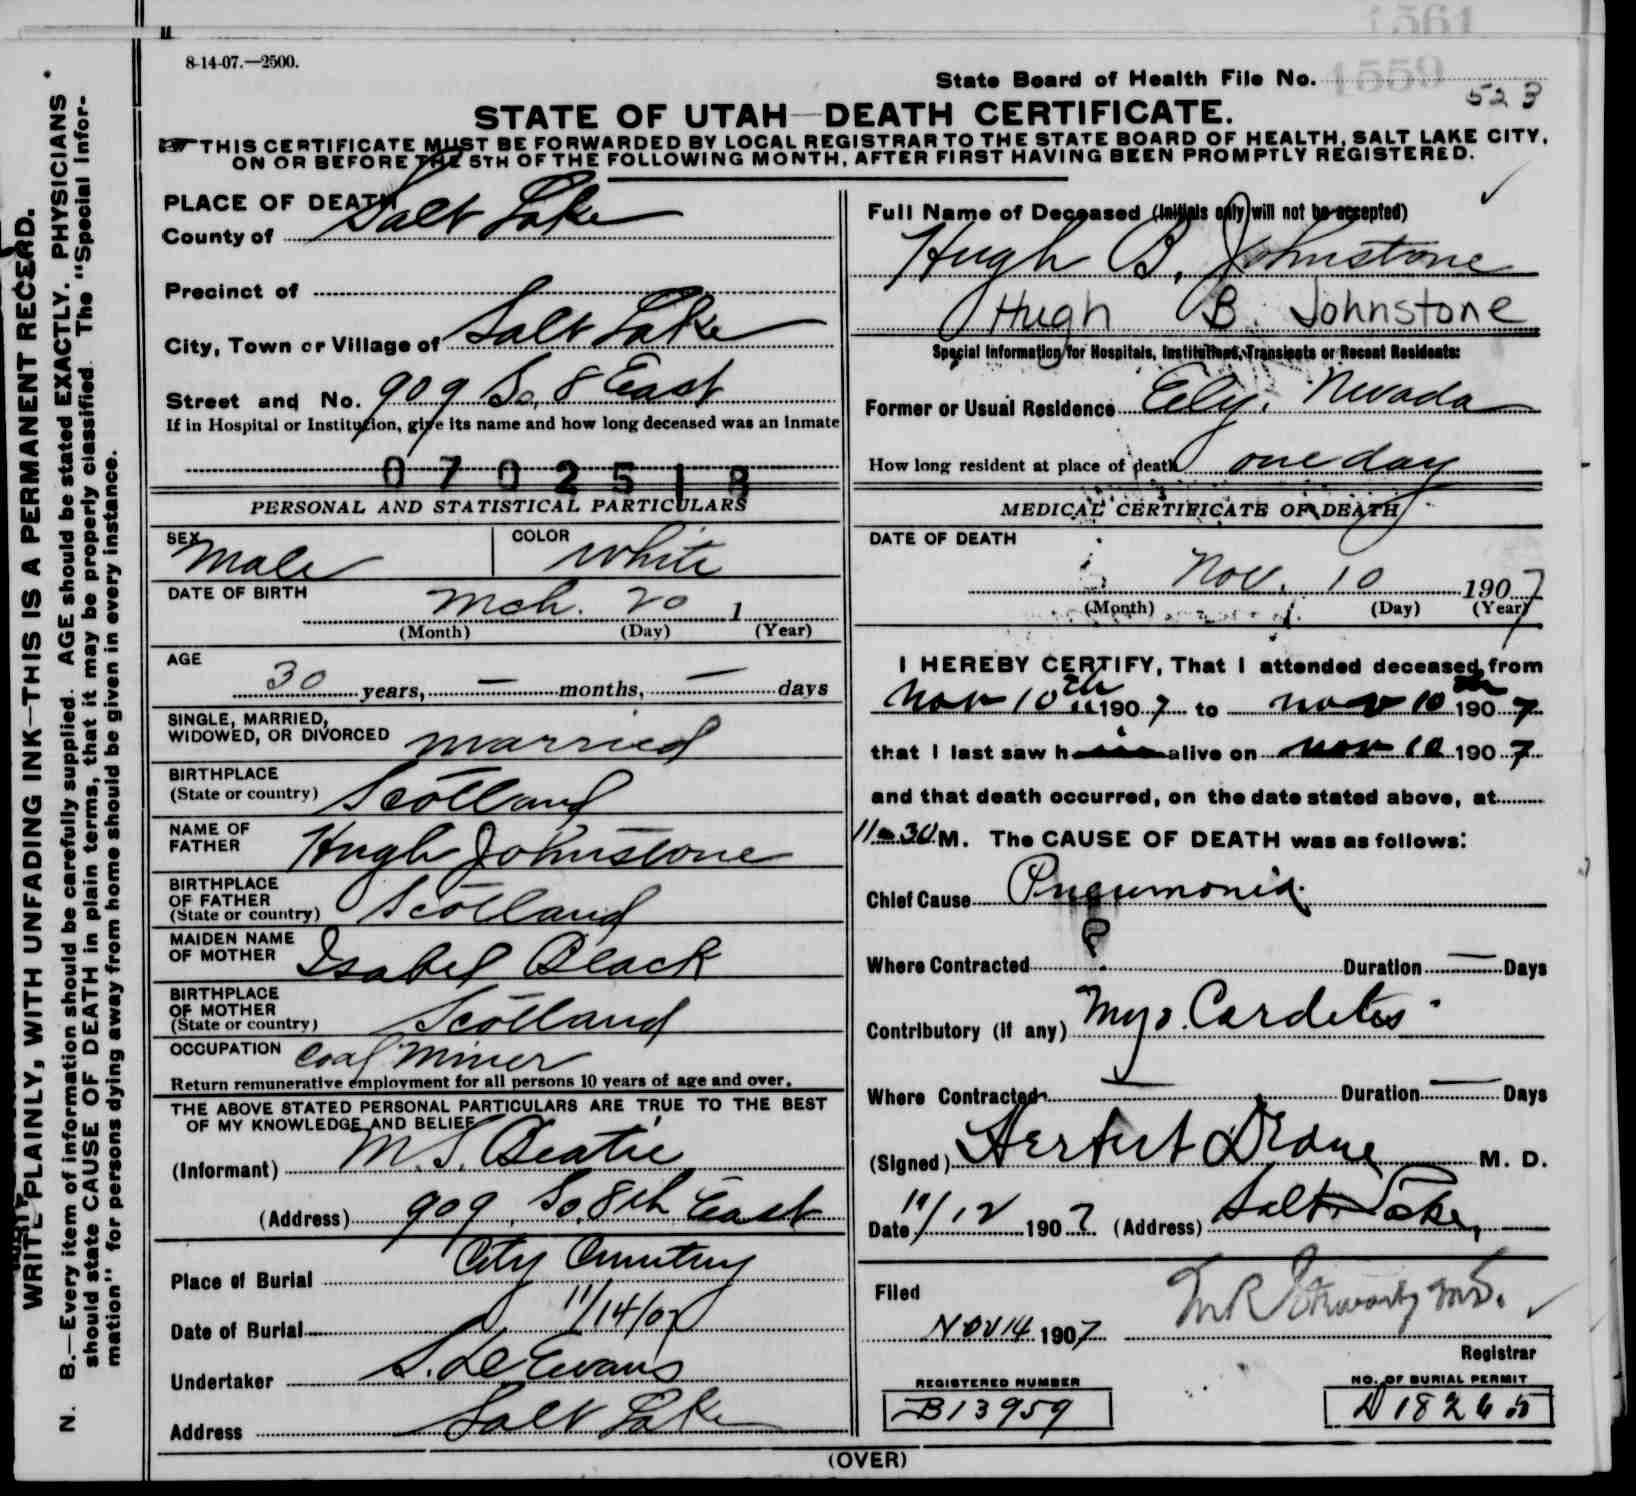 1561
8-14-07.—2500.
State Board of Health File No. 1559
523
STATE OF UTAH—DEATH CERTIFICATE.
THIS CERTIFICATE MUST BE FORWARDED BY LOCAL REGISTRAR TO THE STATE BOARD OF HEALTH, SALT LAKE CITY,
ON OR BEFORE THE 5TH OF THE FOLLOWING MONTH, AFTER FIRST HAVING BEEN PROMPTLY REGISTERED.
WRITE PLAINLY, WITH UNFADING INK—THIS IS A PERMANENT RECORD.
N. B.—Every item of information should be carefully supplied. AGE should be stated EXACTLY. PHYSICIANS
should state CAUSE OF DEATH in plain terms, that it may be properly classified. The "Special Infor-
mation" for persons dying away from home should be given in every instance.
PLACE OF DEATH
County of Salt Lake
Precinct of
City, Town or Village of Salt Lake
Street and No. 909 So. 8 East
If in Hospital or Institution, give its name and how long deceased was an Inmate
0702518
PERSONAL AND STATISTICAL PARTICULARS
SEX Male
COLOR White
DATE OF BIRTH
Mch. 20 1
(Month) (Day) (Year)
AGE
30 years, — months, — days
SINGLE, MARRIED,
WIDOWED, OR DIVORCED married
BIRTHPLACE
(State or country) Scotland
NAME OF
FATHER Hugh Johnstone
BIRTHPLACE
OF FATHER
(State or country) Scotland
MAIDEN NAME
OF MOTHER Isabel Black
BIRTHPLACE
OF MOTHER
(State or country) Scotland
OCCUPATION Coal Miner
Return remunerative employment for all persons 10 years of age and over.
THE ABOVE STATED PERSONAL PARTICULARS ARE TRUE TO THE BEST
OF MY KNOWLEDGE AND BELIEF
(Informant) M. S. Beatie
(Address) 909 So. 8th East
Place of Burial City Cemetery
Date of Burial 11/14/07
Undertaker S. D. Evans
Address Salt Lake
Full Name of Deceased (Initials only will not be accepted)
Hugh B. Johnstone
Hugh B. Johnstone
Special Information for Hospitals, Institutions, Transients or Recent Residents:
Former or Usual Residence Ely, Nevada
How long resident at place of death one day
MEDICAL CERTIFICATE OF DEATH
DATE OF DEATH
Nov. 10 1907
(Month) (Day) (Year)
I HEREBY CERTIFY, That I attended deceased from
Nov 10th 1907 to Nov 10th 1907
that I last saw him alive on Nov 10 1907
and that death occurred, on the date stated above, at
11 30 M. The CAUSE OF DEATH was as follows:
Chief Cause Pneumonia
Where Contracted ? Duration — Days
Contributory (if any) Myo. Cardites
Where Contracted — Duration — Days
(Signed) Herbert M. D.
Date 11/12 1907 (Address) Salt Lake
Filed
Nov 14 1907
Registrar
REGISTERED NUMBER
B13959
NO. OF BURIAL PERMIT
D 18265
(OVER)